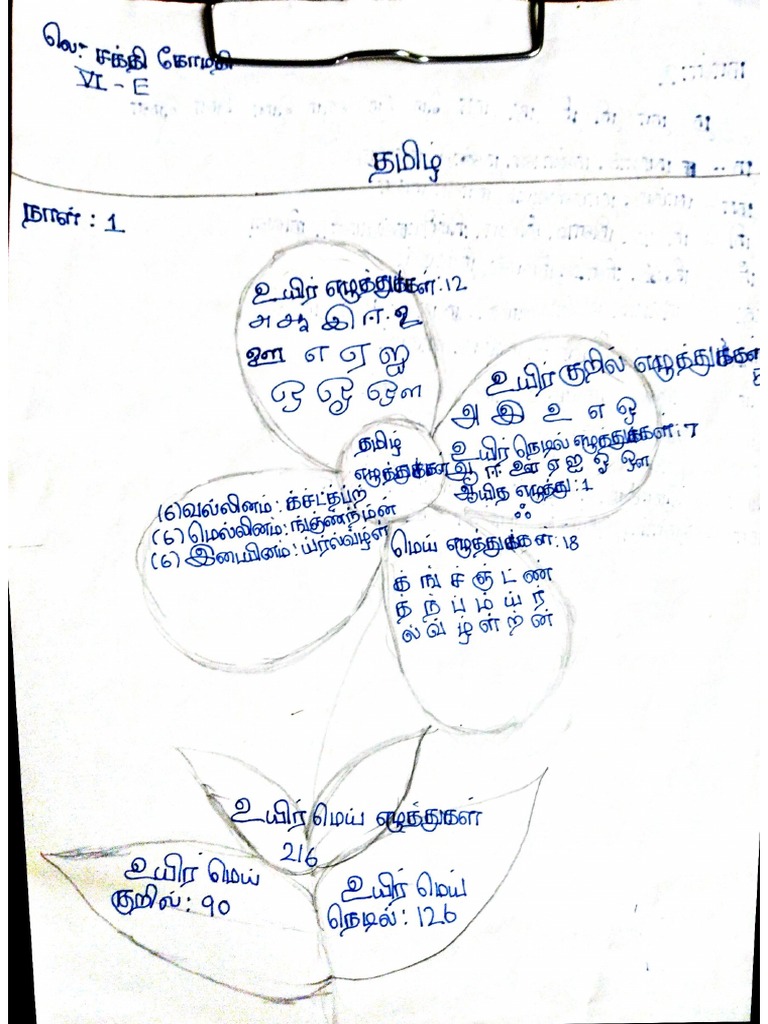 லெ. சக்தி கோமதி
VI - E
தமிழ்
நாள் : 1
உயிர் எழுத்துக்கள்: 12
அ ஆ இ ஈ உ
ஊ எ ஏ ஐ
ஒ ஓ ஔ
உயிர் குறில் எழுத்துக்கள்
அ இ உ எ ஒ
உயிர் நெடில் எழுத்துக்கள்: 7
ஆ ஈ ஊ ஏ ஐ ஓ ஔ
ஆயித எழுத்து : 1
ஃ
தமிழ்
எழுத்துக்கள்
(6) வெல்லினம் : க்ச்ட்த்ப்ற்
(6) மெல்லினம் : ங்ஞ்ண்ந்ம்ன்
(6) இடையினம் : ய்ர்ல்வ்ழ்ள்
மெய் எழுத்துக்கள்: 18
க் ங் ச் ஞ் ட் ண்
த் ந் ப் ம் ய் ர்
ல் வ் ழ் ள் ற் ன்
உயிர் மெய் எழுத்துகள்
216
உயிர் மெய்
குறில் : 90
உயிர் மெய்
நெடில் : 126